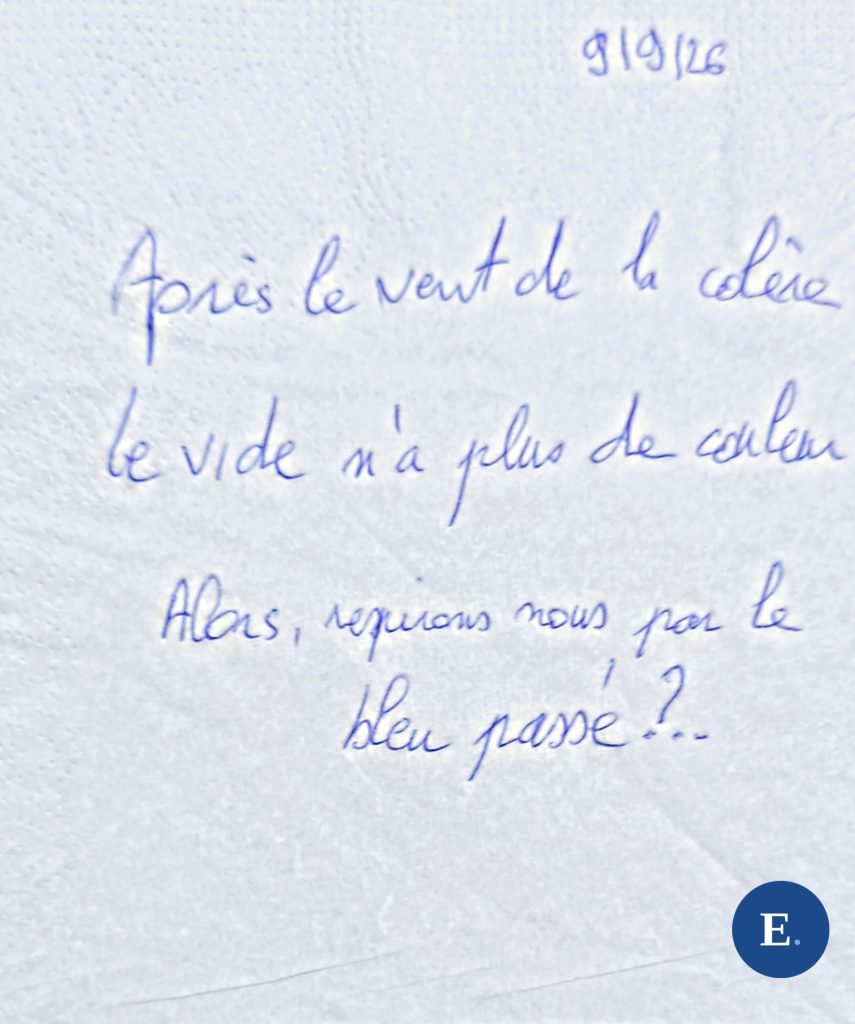 9/9/26
Après le vent de la colère
le vide n'a plus de couleur
Alors, respirons nous par le
bleu passé?...
E.